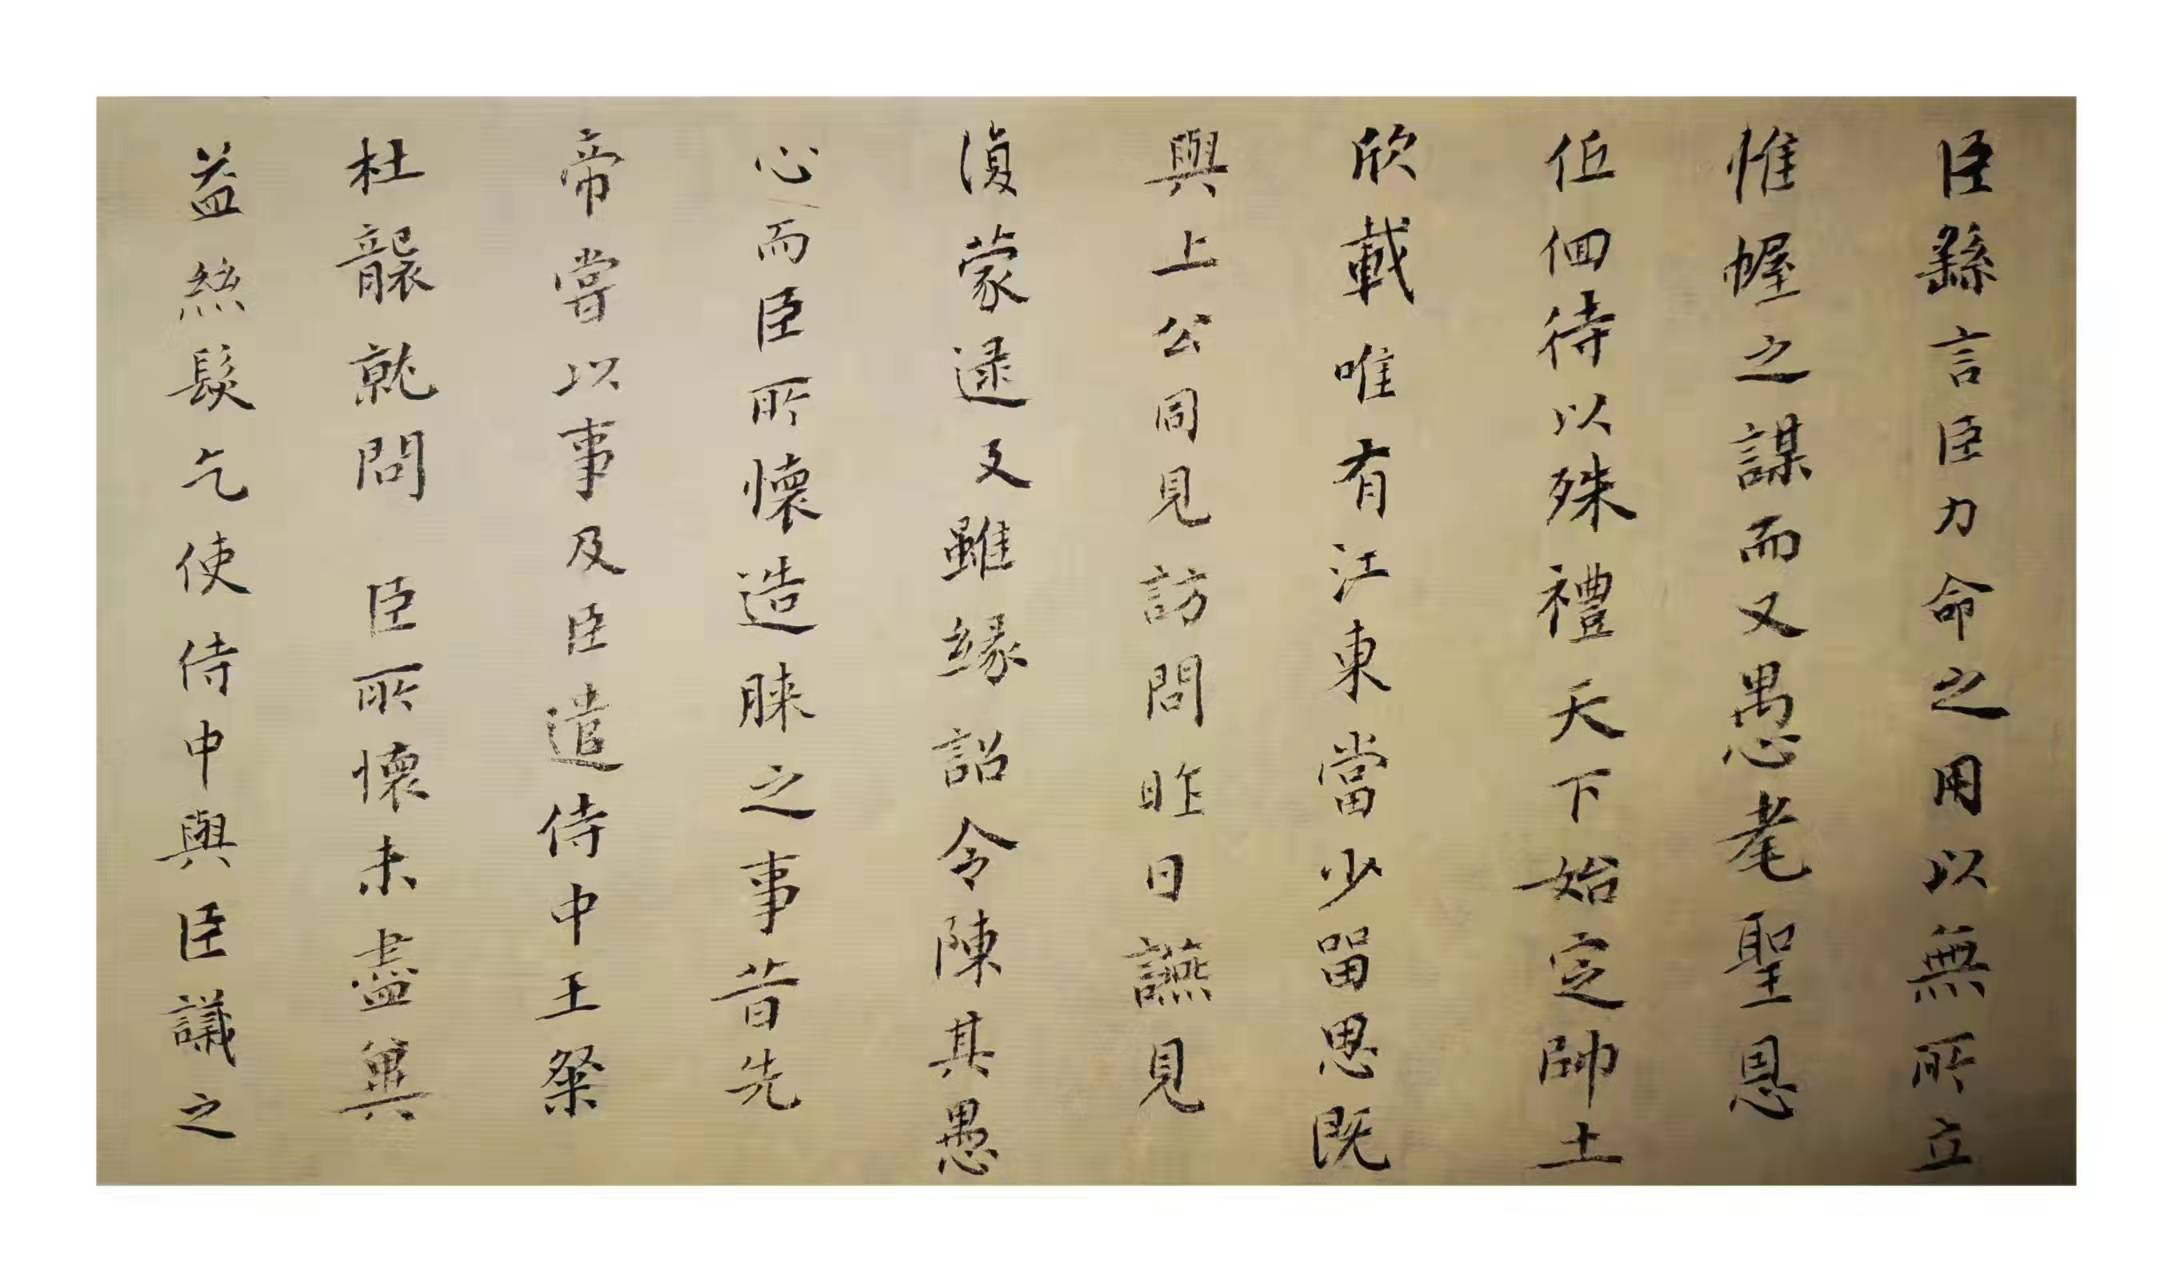 臣繇言臣力命之用以無所立
惟幄之謀而又愚耄聖恩
伍佪待以殊禮天下始定帥土
欣載唯有江東當少留思既
與上公同見訪問昨日讌見
復蒙逮及雖緣詔令陳其愚
心而臣所懷造膝之事昔先
帝嘗以事及臣遣侍中王粲
杜襲就問臣所懷未盡冀
益絲髮乞使侍中與臣議之